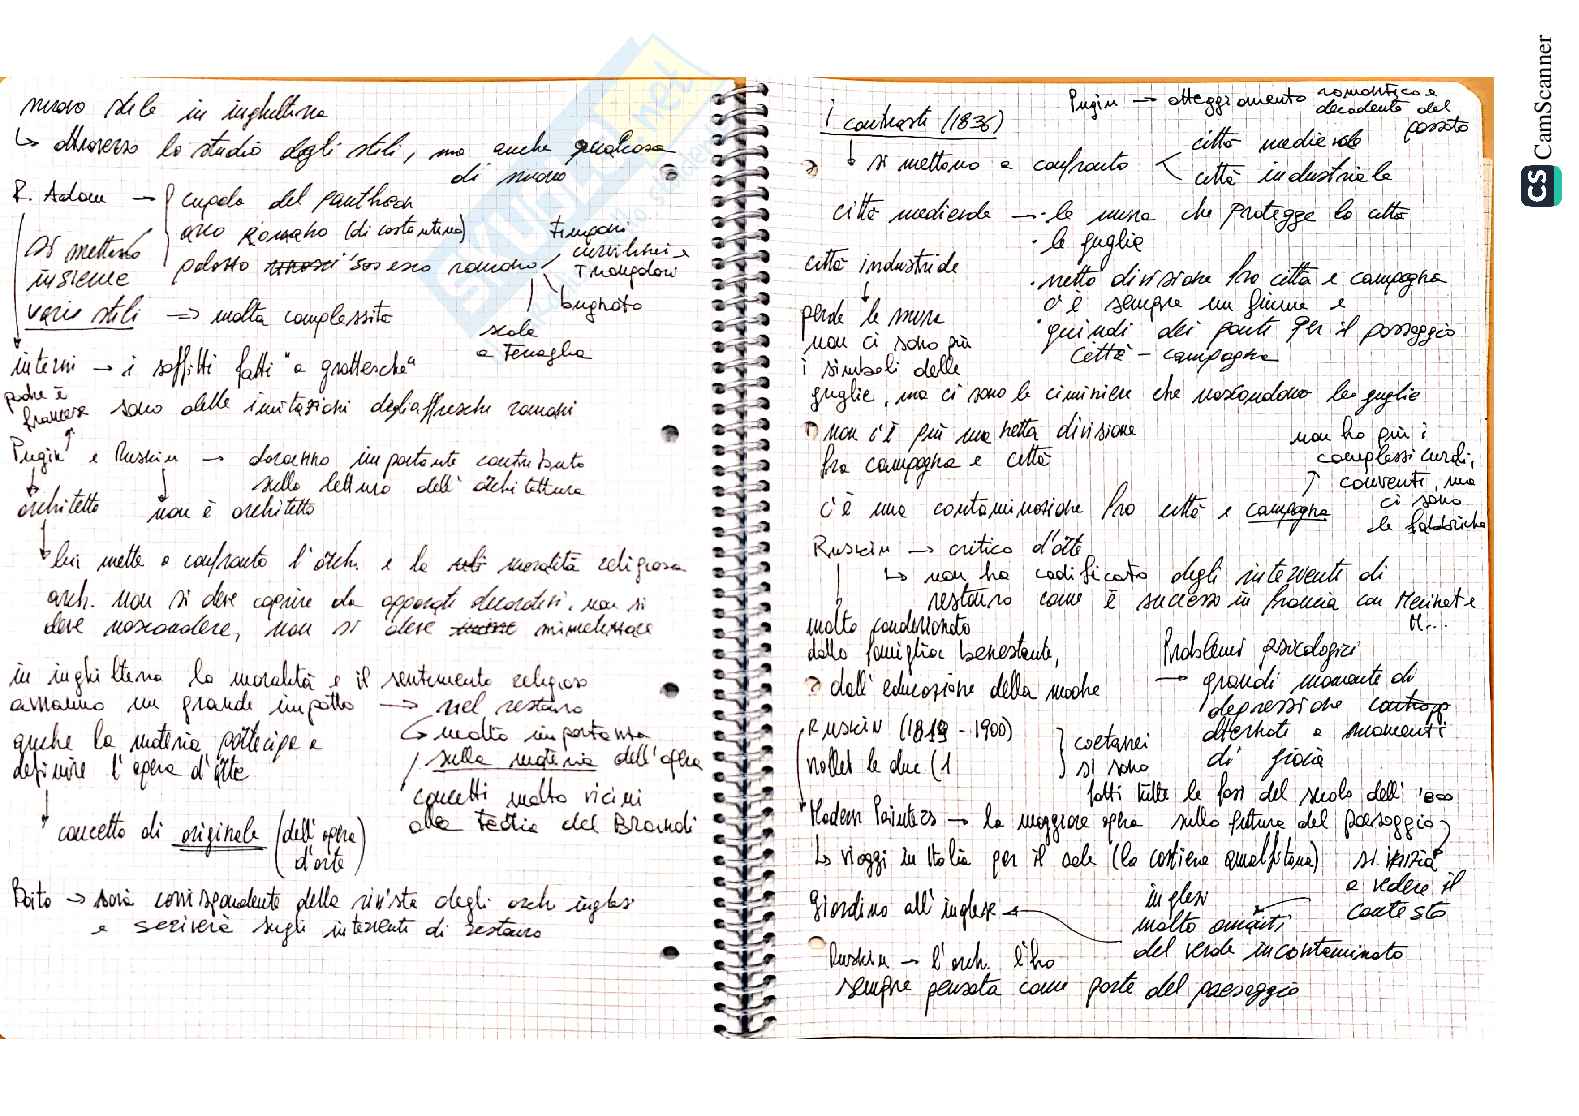 nuovo stile in inghilterra
↳ attraverso lo studio degli stili, ma anche qualcosa
di nuovo
R. Adam → cupola del pantheon
arco Romano (di costantino)
si mettono
insieme
varie stili ⇒ molta complessità
palazzo romano
Timpani
curvilinei e
Triangolari
bugnato
scala
a Tenaglia
interni → i soffitti fatti "a grottesche"
sono delle imitazioni degli affreschi romani
padre è
francese
Pugin e Ruskin → daranno importante contributo
sulla lettura dell'architettura
architetto
non è architetto
lui mette a confronto l'arch. e la moralità religiosa
arch. non si deve coprire da apparati decorativi, non si
deve nascondere, non si deve mimetizzare
in inghilterra la moralità e il sentimento religioso
avranno un grande impatto → nel restauro
↪ molta importanza
sulla materia dell'opera
anche la materia partecipa a
definire l'opera d'arte
concetti molto vicini
alla Teoria del Brandi
concetto di originale (dell'opera
d'arte)
Boito → sarà corrispondente della rivista degli arch. inglesi
e scriverà sugli interventi di restauro
I contrasti (1836)
Pugin → atteggiamento romantico e
decadente del
passato
si mettono a confronto
città medievale
città industriale
città medievale → · le mura che protegge la città
· le guglie
· netta divisione tra città e campagna
c'è sempre un fiume e
· quindi dei ponti per il passaggio
città - campagna
città industriale
perde le mura
non ci sono più
i simboli delle
guglie, ma ci sono le ciminiere che nascondono le guglie
non c'è più una netta divisione
tra campagna e città
non ho più i
complessi
conventi, ma
ci sono
le fabbriche
c'è una contaminazione tra città e campagna
Ruskin → critico d'arte
↳ non ha codificato degli interventi di
restauro come è successo in francia con Merimet e
M...
molto condizionato
dalla famiglia benestante,
dall'educazione della madre
Problemi psicologici
→ grandi momenti di
depressione
alternati a momenti
di gioia
Ruskin (1819 - 1900)
Viollet le duc (1
} coetanei
si sono
fatti tutte le fasi del secolo dell'800
Modern Painters → la maggiore opera sulla pittura del paesaggio
↳ viaggi in Italia per il sole (la costiera amalfitana)
si inizia
a vedere il
contesto
Giardino all'inglese
inglesi
molto amanti
del verde incontaminato
Ruskin → l'arch. l'ha
sempre pensata come parte del paesaggio
CS CamScanner